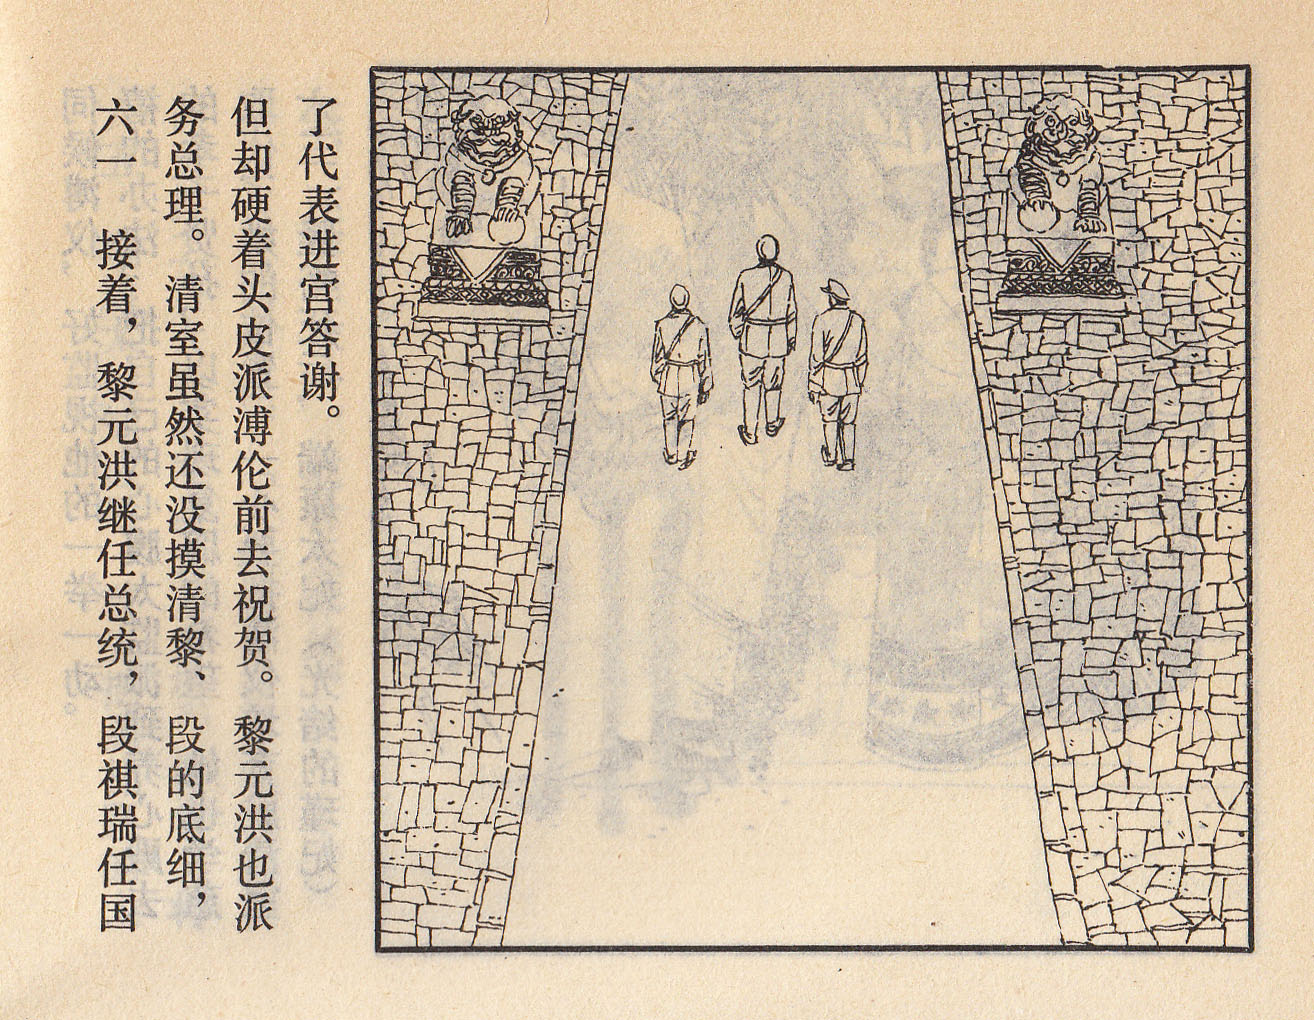 六一　接着，黎元洪继任总统，段祺瑞任国
务总理。清室虽然还没摸清黎、段的底细，
但却硬着头皮派溥伦前去祝贺。黎元洪也派
了代表进宫答谢。